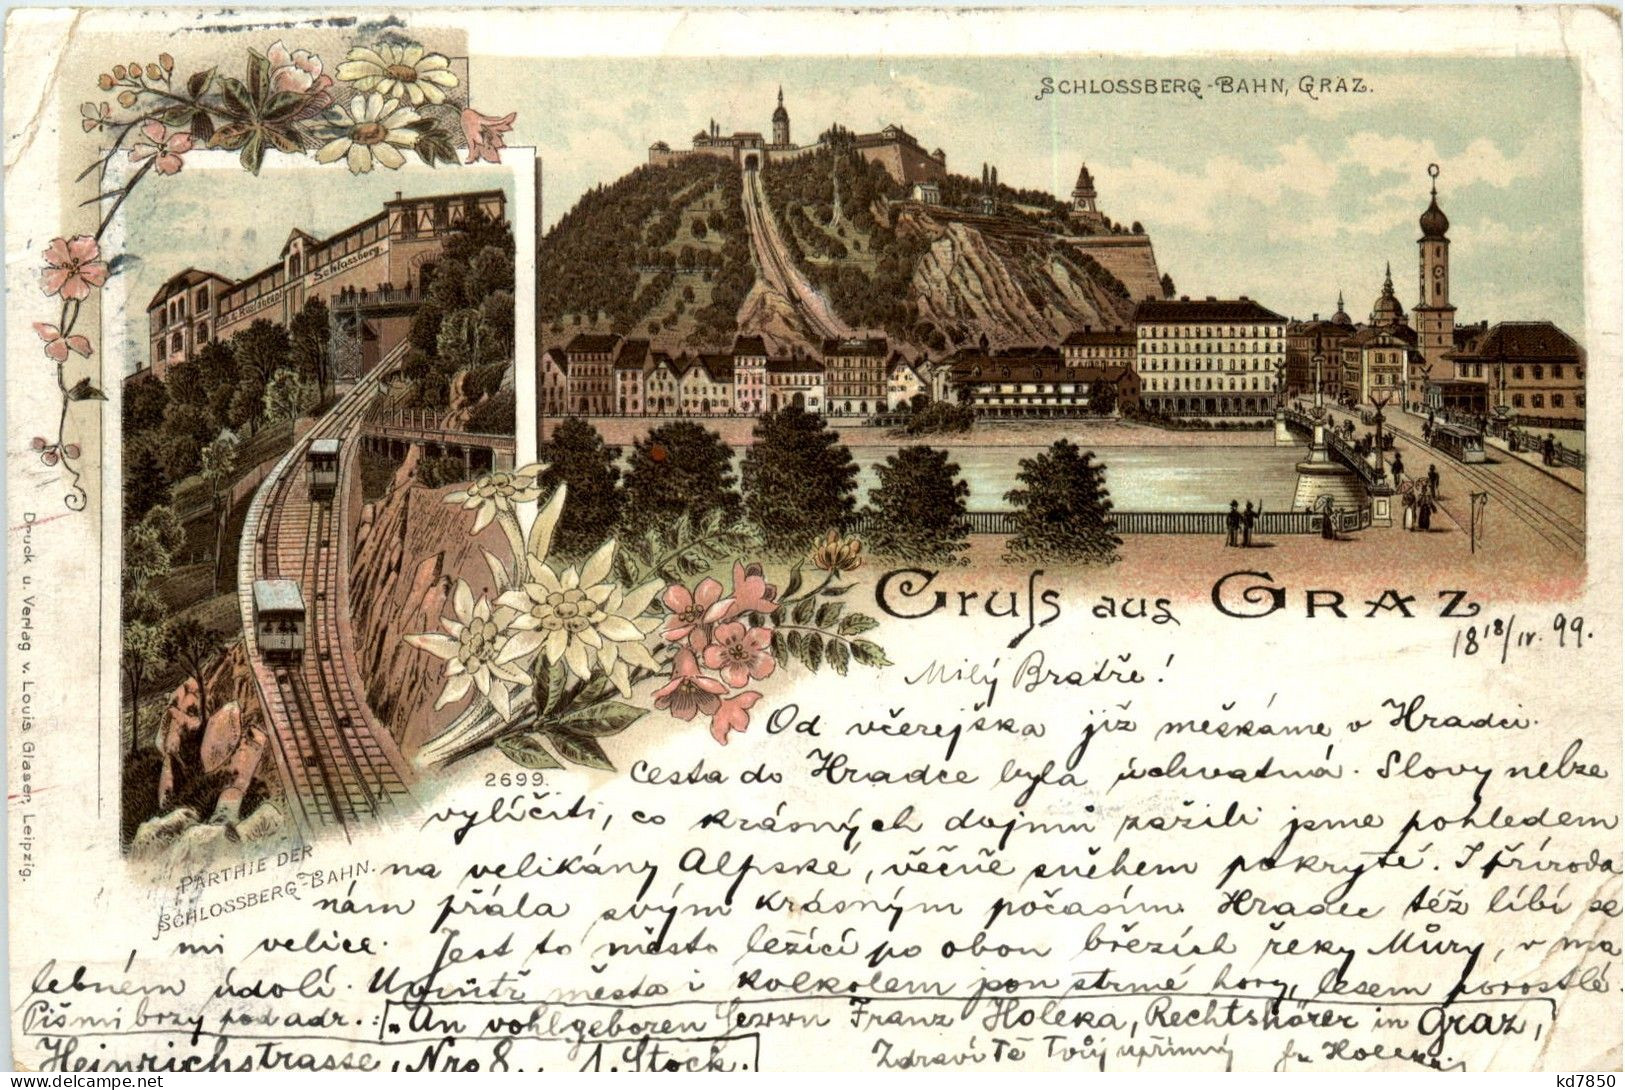 SCHLOSSBERG-BAHN, GRAZ.
Schlossberg
Gruss aus GRAZ
18 18/IV. 99.
Milý Bratře!
Od včerejška již meškáme v Hradci.
Cesta do Hradce byla úchvatná. Slovy nelze
2699.
vylíčiti, co krásných dojmů zažili jsme pohledem
na velikány Alpské, věčně sněhem pokryté. I příroda
nám přála svým krásným počasím. Hradec též líbí se
mi velice. Jest to město ležící po obou březích řeky Můry, v ma
lebném údolí. Uvnitř města i kolkolem jsou strmé hory, lesem porostlé.
Piš mi brzy pod adr.: „An wohlgeboren Herrn Franz Holeka, Rechtshörer in Graz,
Heinrichstrasse, Nro 8., 1. Stock.
Zdraví Tě Tvůj upřímný Fr. Holeka
PARTHIE DER
SCHLOSSBERG-BAHN.
Druck u. Verlag v. Louis Glaser, Leipzig.
kd7850